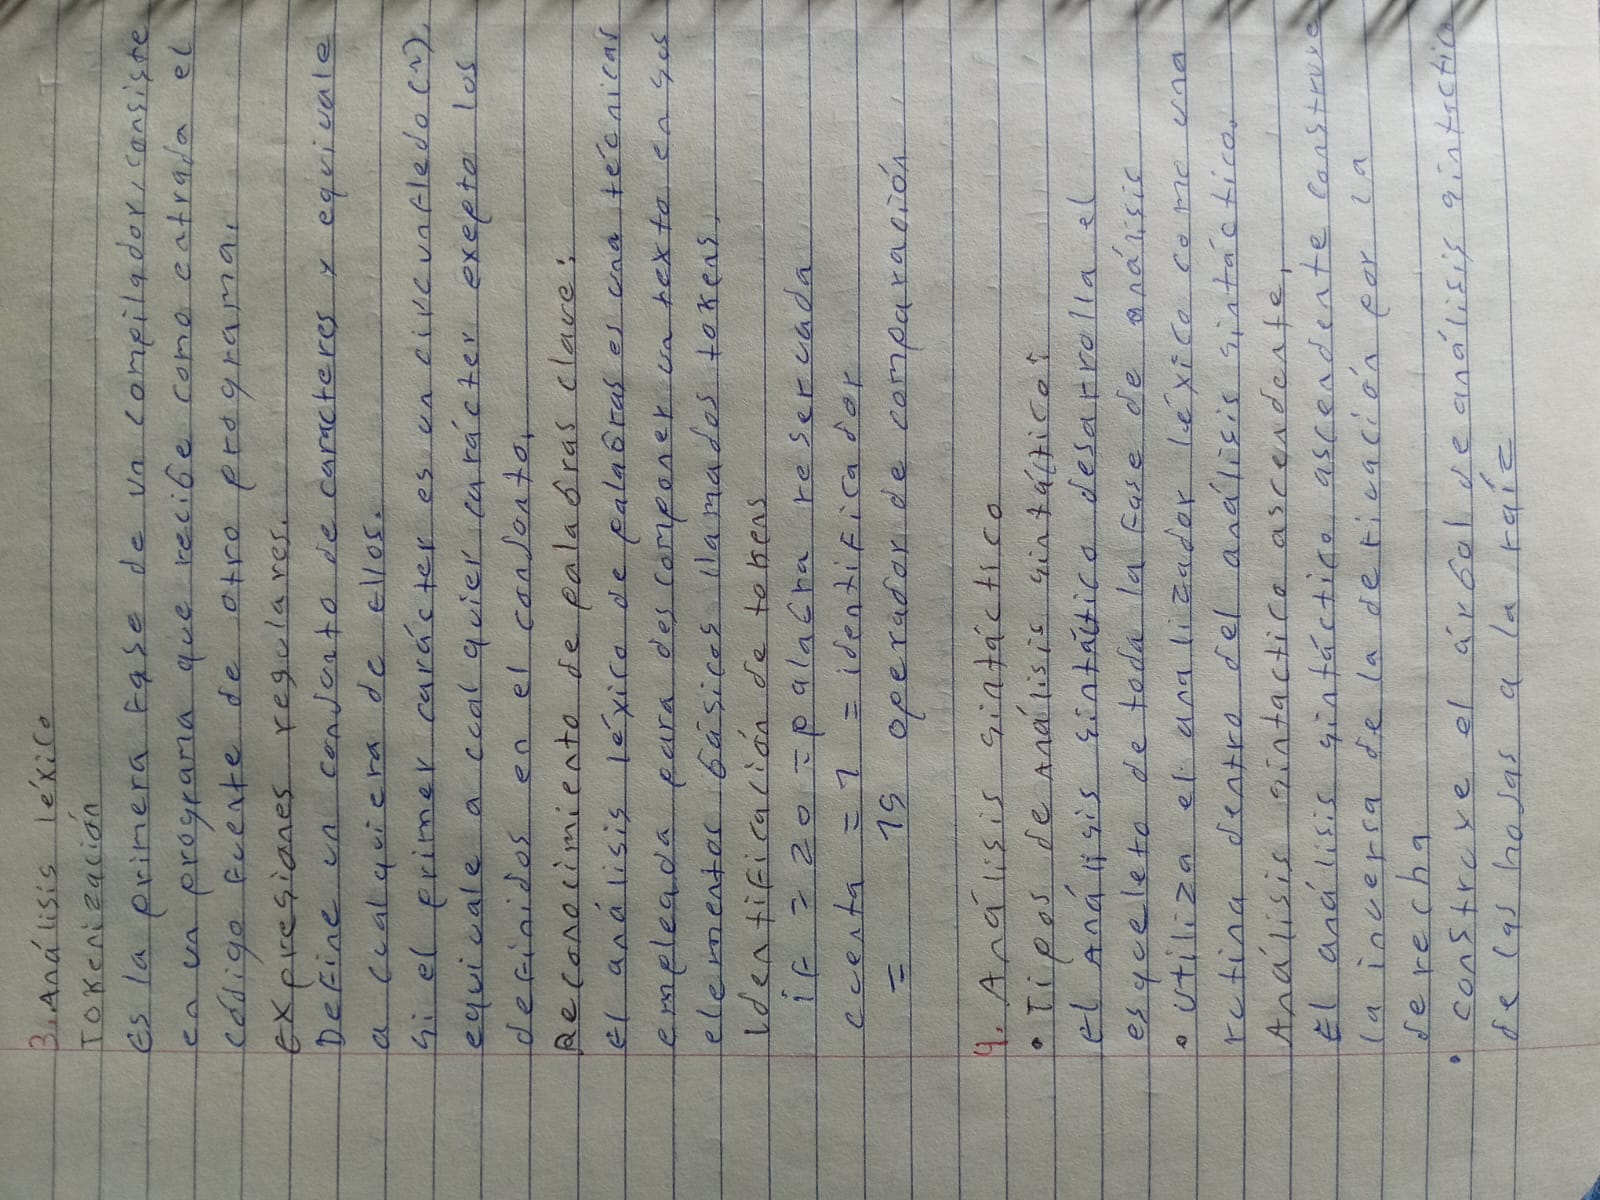 3. Análisis léxico
Tokenización
Es la primera fase de un compilador, consiste
en un programa que recibe como entrada el
código fuente de otro programa.
expresiones regulares.
Define un conjunto de caracteres y equivale
a cualquiera de ellos.
si el primer carácter es un circunfledo (^),
equivale a cual quier carácter exepto los
definidos en el conjonto.
Reconocimiento de palabras clave:
el análisis léxico de palabras es una técnicas
empleada para descomponer un texto en sus
elementos básicos llamados tokens.
Identificación de tokens
if = 20 = palabra reservada
cuenta = 1 = identificador
= 15 operador de comparación.
4. Análisis sintáctico
• Tipos de Análisis sintáctico:
El Análisis sintático desarrolla el
esqueleto de toda la fase de análisis
• utiliza el analizador léxico como una
rutina dentro del análisis sintáctico.
Análisis sintactico ascendente.
El análisis sintáctico ascendente construye
la inversa de la derivación por la
derecha
• construye el árbol de análisis sintáctico
de las hojas a la raíz